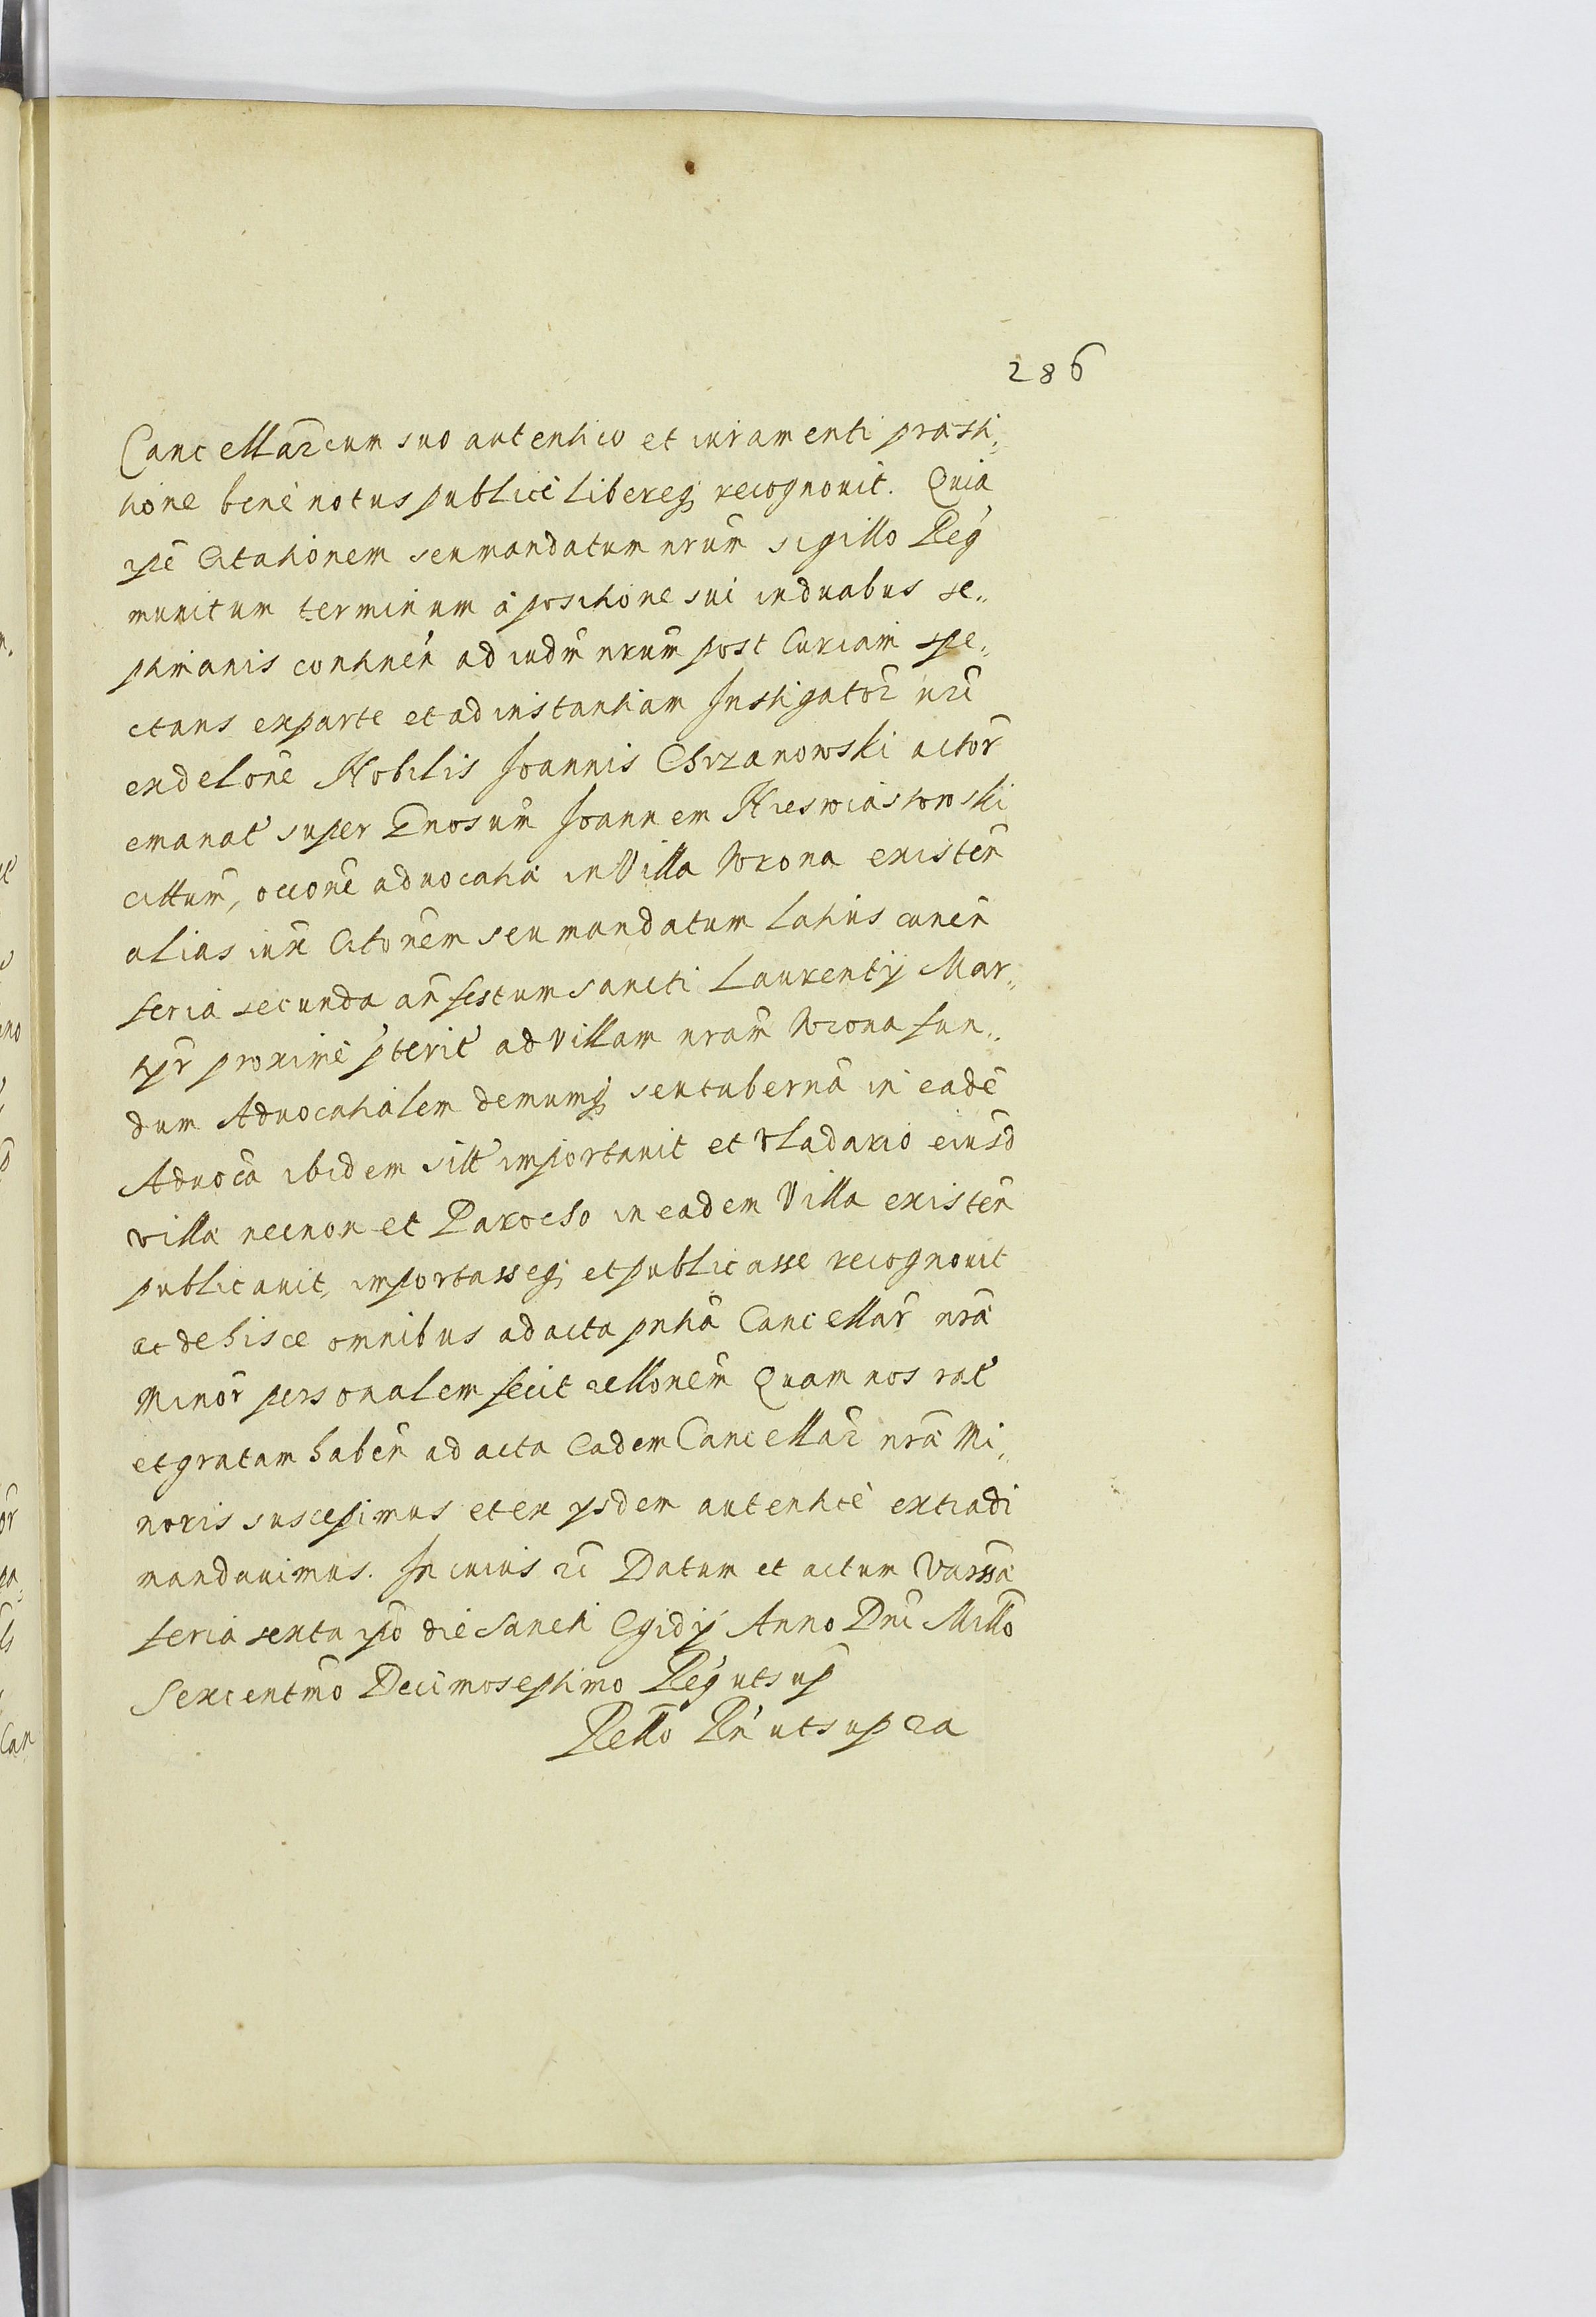 286
Cancellar cum suo autentico et iuramenti præsti„
tione benè notus publicè libereq₃ recognouit. Quia
ipe Citationem seu mandatum nrum sigillo Reg
munitum terminum à positione sui in duabus se„
ptimanis continen ad iudm nrum post Curiam spe„
ctans ex parte et ad instantiam Instigator nri
ex delone Nobilis Joannis Chrzanowski actor
emanat super Gnosum Joannem Nieswiastowski
cittum, occone aduocatiæ in Villa Wrona existen
alias iuxe Citonem seu mandatum latius canen
feria secunda an festum sancti Laurentij Mar„
tyr proximè pterit ad villam nram Wrona fun„
dum Aduocatialem demumq₃ seu tabernã in eadē
Aduocã ibidem sitt importauit et vladario eiusd
villæ necnon et Parocho in eadem Villa existen
publicauit, importasseq₃ et publicasse recognouit
ac de hisce omnibus ad acta pntiã Cancellar nræ
Minor personalem fecit rellonem Quam nos rat
et gratam haben ad acta Eadem Cancellar nræ Mi„
noris suscepimus et ex ysdem autenticè extradi
mandauimus. In cuius rei Datum et actum Varssæ
feria sexta ipo die Sancti Egidij Anno Dni Millo
Sexcentmo Decimoseptimo Reg ut sup
Rello Rn ut supra